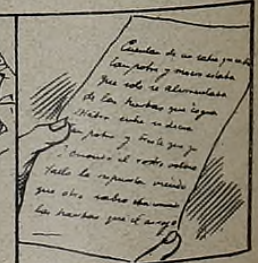 Cuentan de un sabio que un
tan pobre y misero estaba
Que solo se alimentaba
de las hierbas que cogia
Habra entre si decia
pobre y triste que yo
Y cuando el rostro volvio
hallo la respuesta viendo
que otro sabio iba
las hierbas que el arrojo